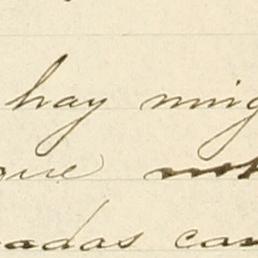 hay ning
que
adas can